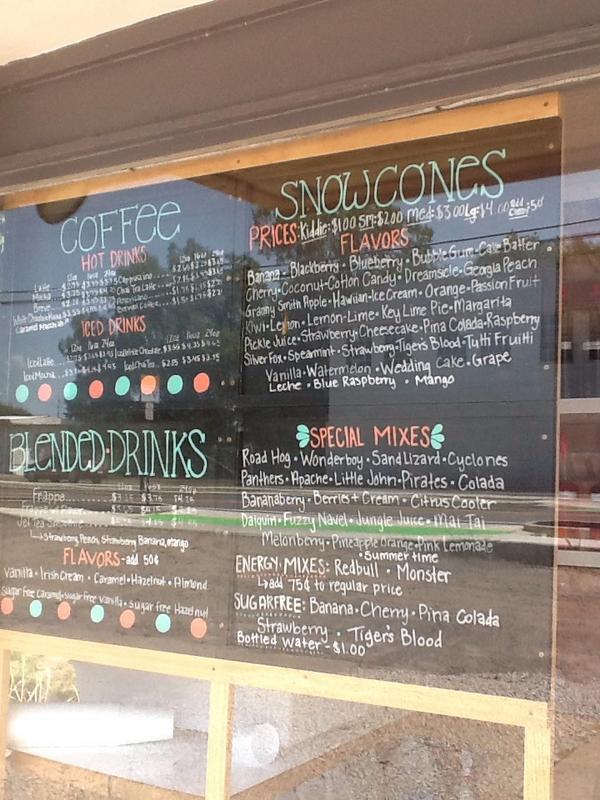 COFFEE
HOT DRINKS
12oz 16oz 24oz
Latte
Mocha
Breve
White Chocolate Mocha
Caramel Macchiato
12oz 16oz 24oz
Cappuccino
Chai Tea Latte
Americano
Brewed Coffee
ICED DRINKS
12oz 16oz 24oz
Iced Latte
Iced Mocha
Iced White Chocolate
Iced Chai Tea $2.95 $3.45 $3.95
BLENDED·DRINKS
12oz 16oz 24oz
Frappe $3.25 $3.75 $4.25
Jet Tea Smoothie
Strawberry, Peach, Strawberry Banana, mango
FLAVORS-add 50¢
Vanilla · Irish Cream · Caramel · Hazelnut · Almond
Sugar free Caramel · Sugar free Vanilla · Sugar free Hazelnut
SNOWCONES
PRICES: Kiddie: $1.00 Sm: $2.00 Med: $3.00 Lg: $4.00 add Cream: 50¢
FLAVORS
Banana · Blackberry · Blueberry · Bubble Gum · Cake Batter
Cherry · Coconut · Cotton Candy · Dreamsicle · Georgia Peach
Granny Smith Apple · Hawiian · Ice Cream · Orange · Passion Fruit
Kiwi · Lemon · Lemon-Lime · Key Lime Pie · Margarita
Pickle Juice · Strawberry Cheesecake · Pina Colada · Raspberry
Silver Fox · Spearmint · Strawberry · Tiger's Blood · Tutti Fruitti
Vanilla · Watermelon · Wedding Cake · Grape
Leche · Blue Raspberry · Mango
SPECIAL MIXES
Road Hog · Wonderboy · Sand Lizard · Cyclones
Panthers · Apache · Little John · Pirates · Colada
Bananaberry · Berries + Cream · Citrus Cooler
Daiquin · Fuzzy Navel · Jungle Juice · Mai Tai
Melonberry · Pineapple Orange · Pink Lemonade
· Summer time
ENERGY MIXES: Redbull · Monster
add 75¢ to regular price
SUGARFREE: Banana · Cherry · Pina Colada
Strawberry · Tiger's Blood
Bottled Water - $1.00